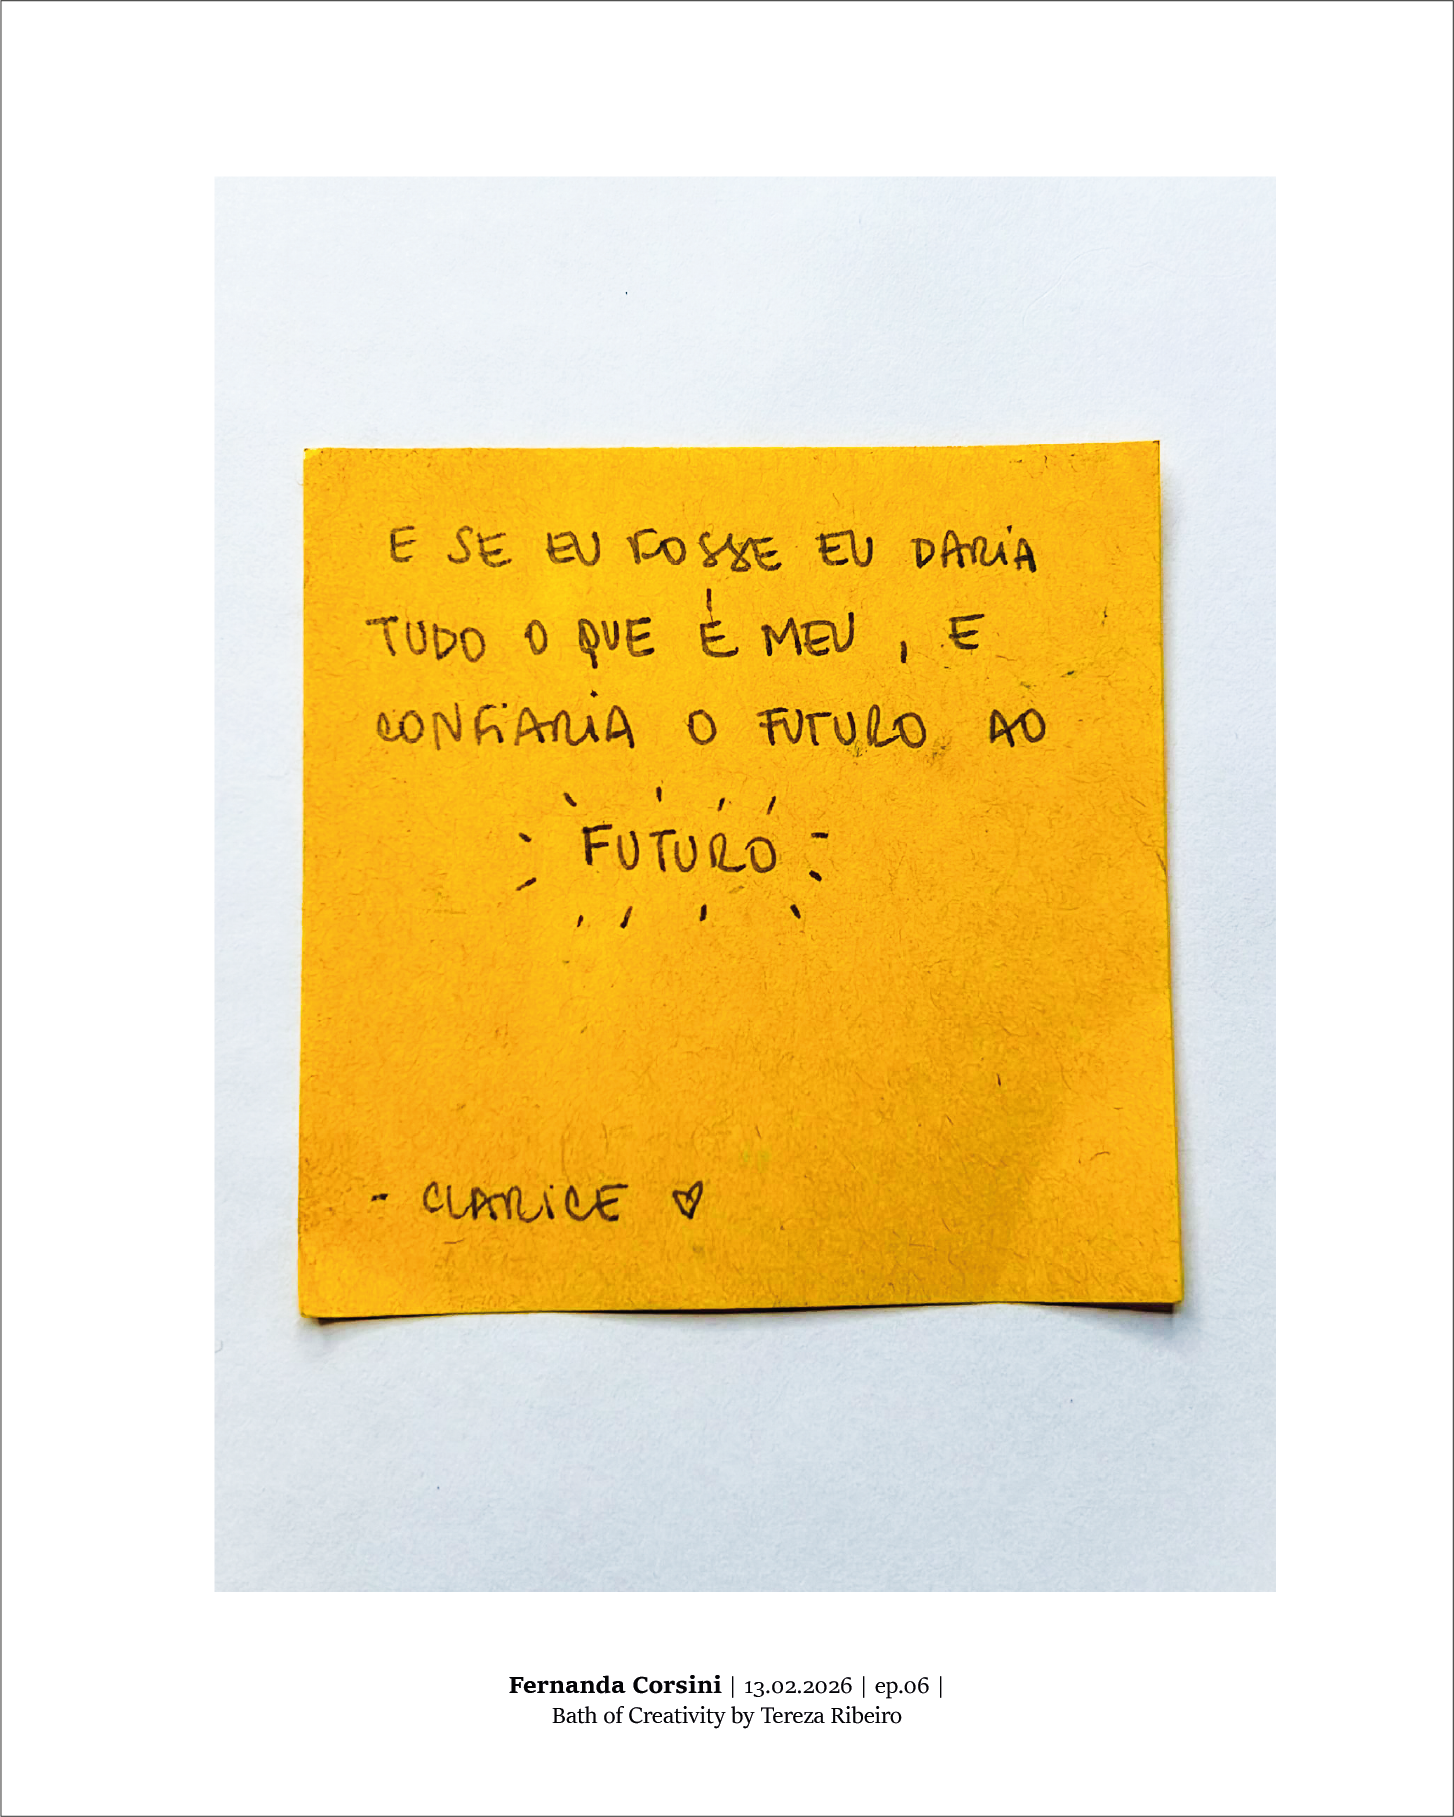 E SE EU FOSSE EU DARIA
TUDO O QUE É MEU, E
CONFIARIA O FUTURO AO
FUTURO
- CLARICE ♡
Fernanda Corsini | 13.02.2026 | ep.06 |
Bath of Creativity by Tereza Ribeiro